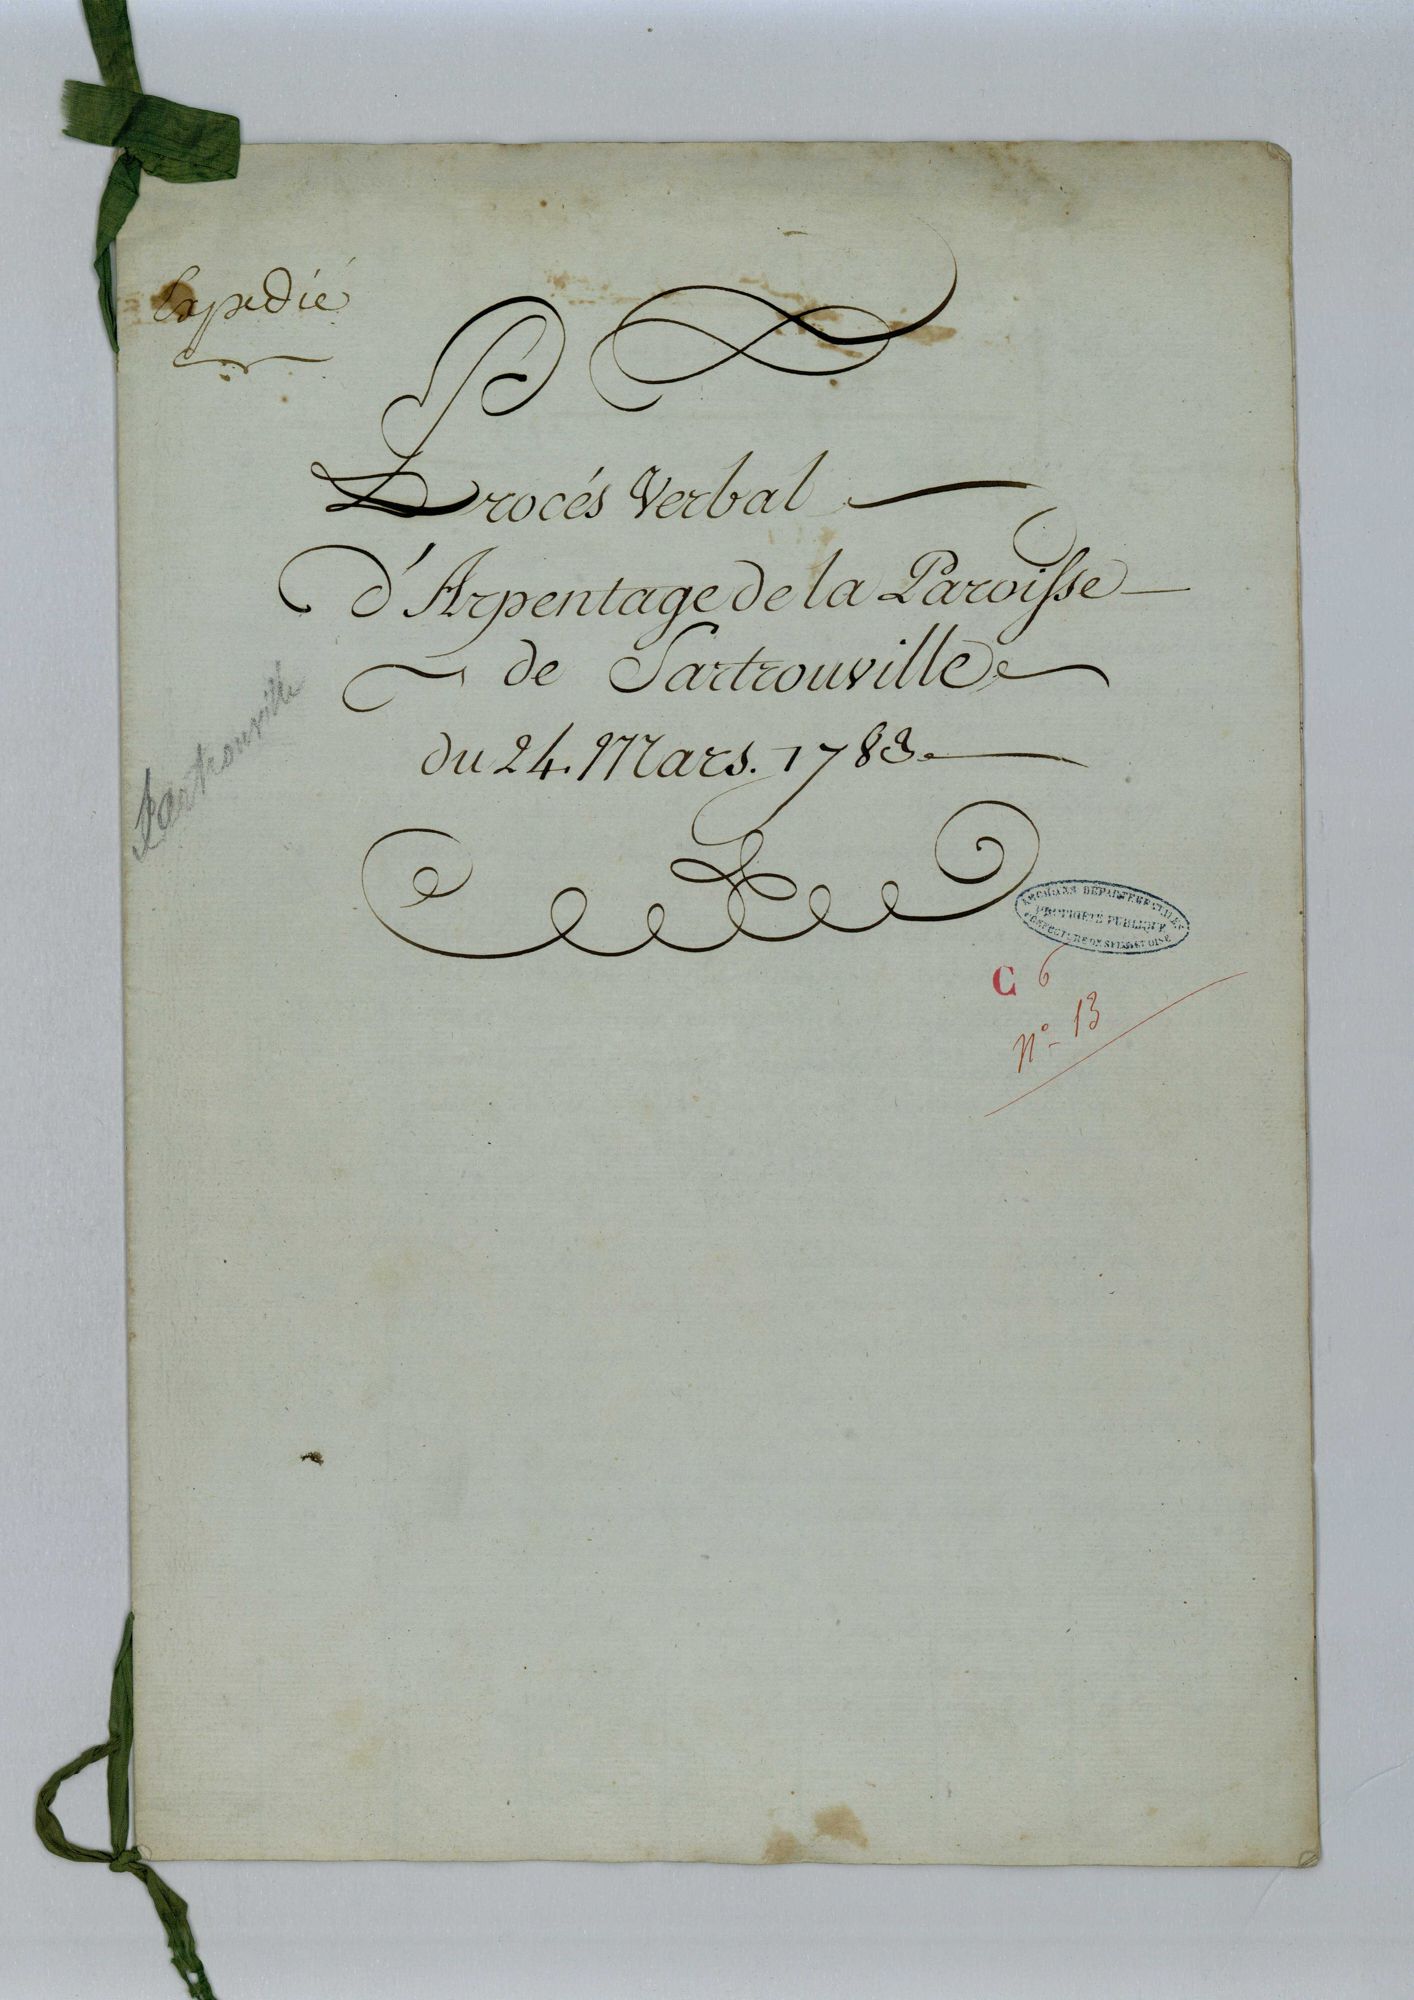 Expedié
Procés Verbal
d'Arpentage de la Paroisse
de Sartrouville
du 24. Mars. 1783.
Sartrouville
ARCHIVES DEPARTEMENTALES
PROPRIETE PUBLIQUE
PREFECTURE DE SEINE ET OISE
C 6
N° 13